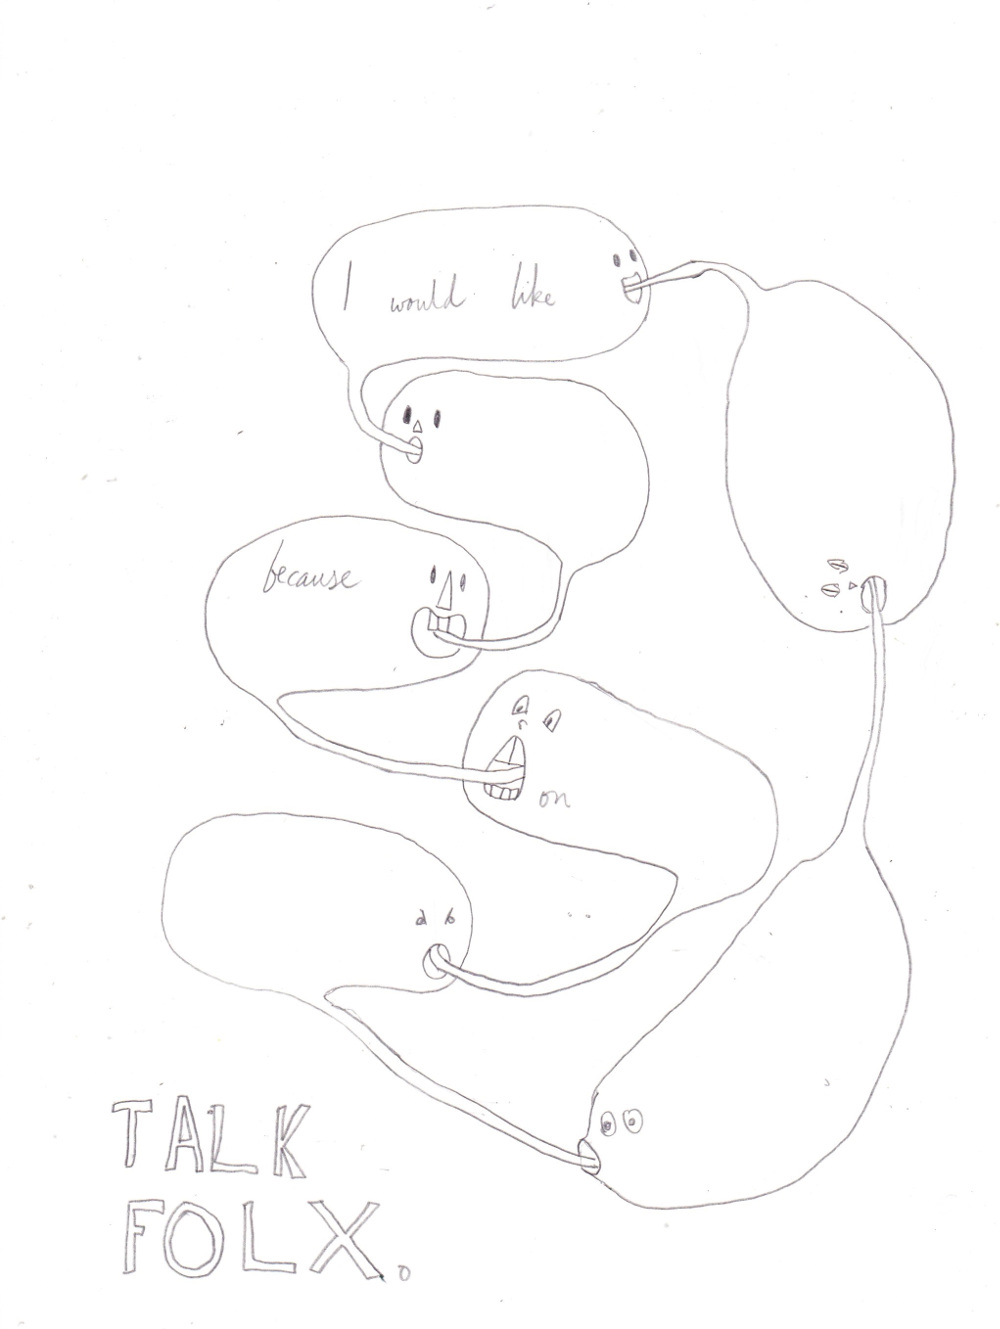 I would like
because
on
TALK
FOLX.